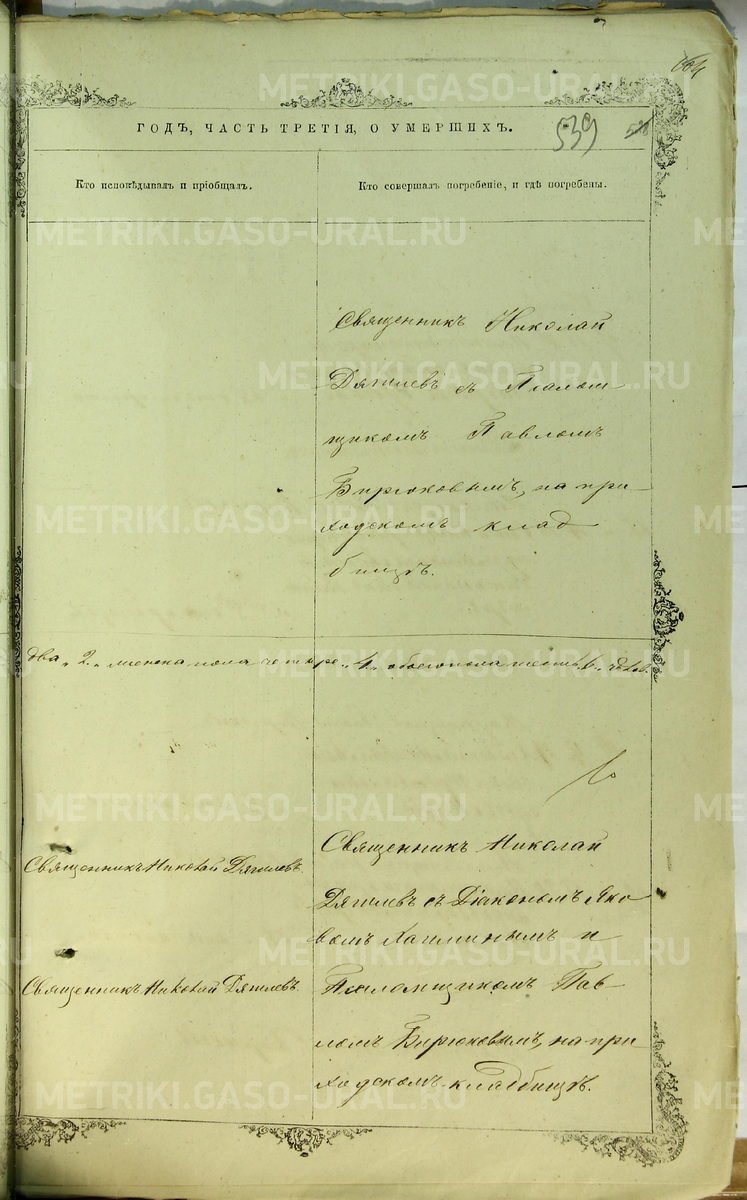 ГОДЪ, ЧАСТЬ ТРЕТІЯ, О УМЕРШИХЪ.
539
Кто исповѣдывалъ и пріобщалъ.
Кто совершалъ погребеніе, и гдѣ погребены.
Священникъ Николай
Дягилевъ съ Псалом
щикомъ Павломъ
Бирюковымъ, на при-
ходскомъ клад
бищѣ.
два „2„ женска пола четыре „4„ обоего пола шесть „6„ чел.
Священникъ Николай Дягилевъ
Священникъ Николай Дягилевъ
Священникъ Николай
Дягилевъ съ Діакономъ Яко
вомъ Хаплинымъ и
Псаломщикомъ Пав-
ломъ Бирюковымъ, на при
ходскомъ кладбищѣ.
METRIKI.GASO-URAL.RU